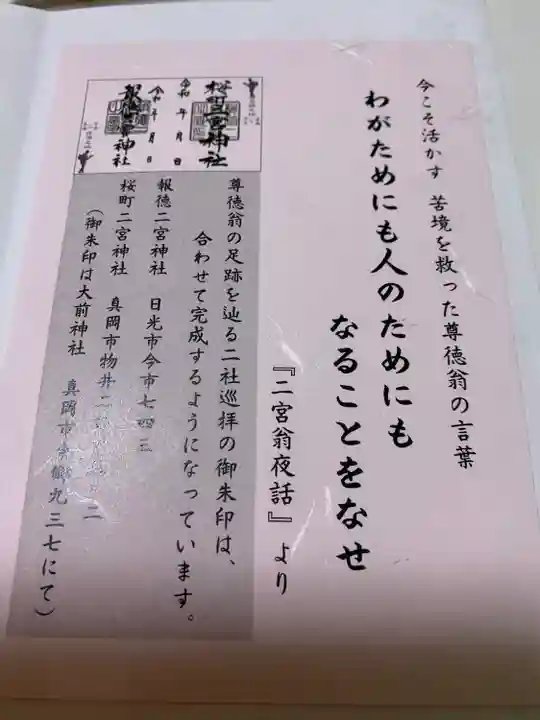 今こそ活かす 苦境を救った尊徳翁の言葉
わがためにも人のためにも
なることをなせ
『二宮翁夜話』より
桜町二宮神社
令和 年 月 日
令和 年 月 日
報徳二宮神社
尊徳翁の足跡を辿る二社巡拝の御朱印は、
合わせて完成するようになっています。
報徳二宮神社 日光市今市七四三
桜町二宮神社 真岡市物井二
(御朱印は大前神社 真岡市東郷九三七にて)